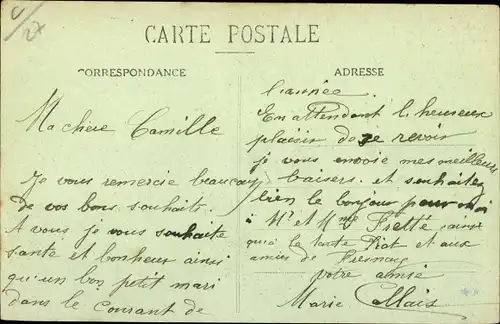 C/27
CARTE POSTALE
CORRESPONDANCE
Ma chère Camille
Je vous remercie beaucoup
de vos bons souhaits.
A vous je vous souhaite
santé et bonheur ainsi
qu'un bon petit mari
dans le Courant de
ADRESSE
l'année.
En attendant l heureux
plaisir de se revoir
je vous envoie mes meilleurs
baisers. et souhaitez
bien le bonjour pour moi
à Mr et Mme Fretté, ainsi
qu'à la tante Piat et aux
amies de Fresnay
votre amie
Marie Collais